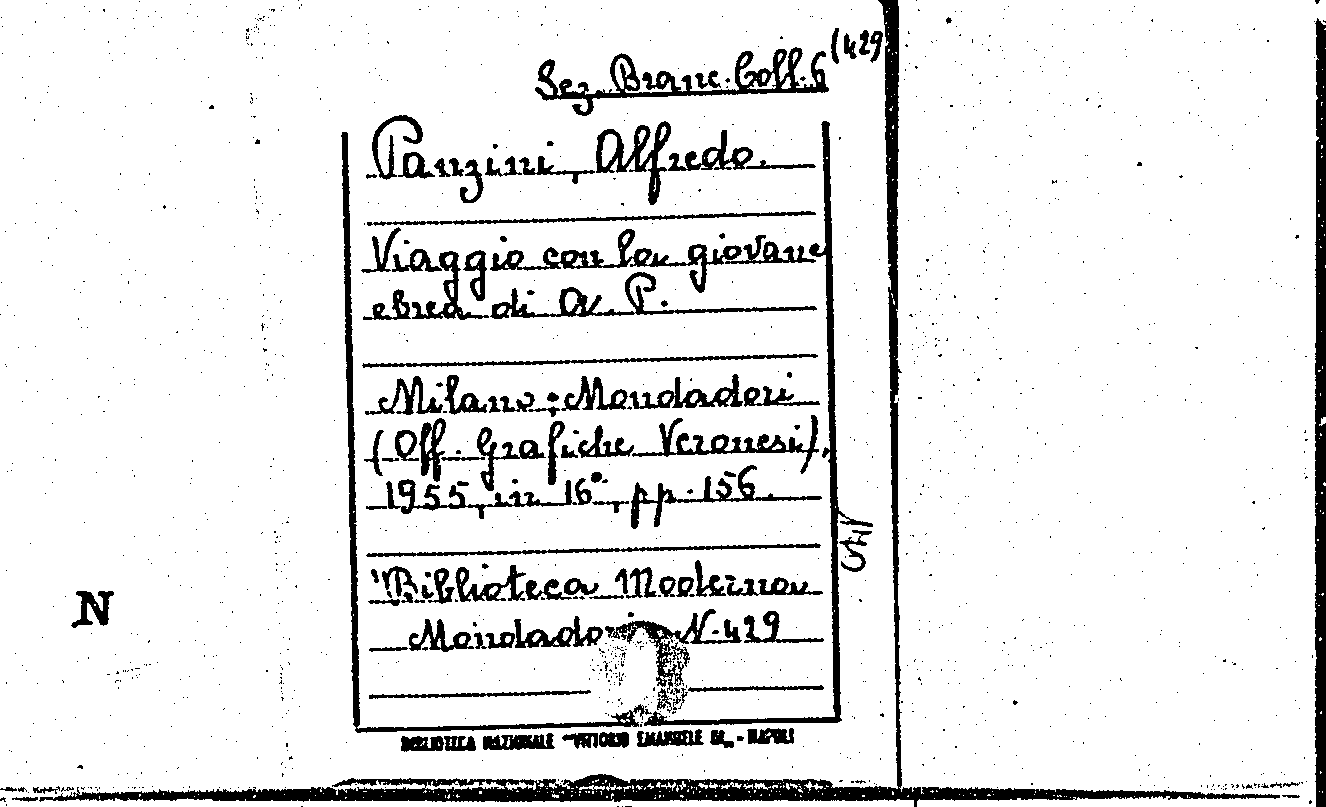 Sez. Branc. Coll. 6 (429
Panzini, Alfredo.
Viaggio con la giovane
ebrea di A. P.
Milano: Mondadori
(Off. Grafiche Veronesi),
1955, in 16°, pp. 156.
"Biblioteca Moderna
Mondadori N. 429
N
BIBLIOTECA NAZIONALE "VITTORIO EMANUELE III" - NAPOLI